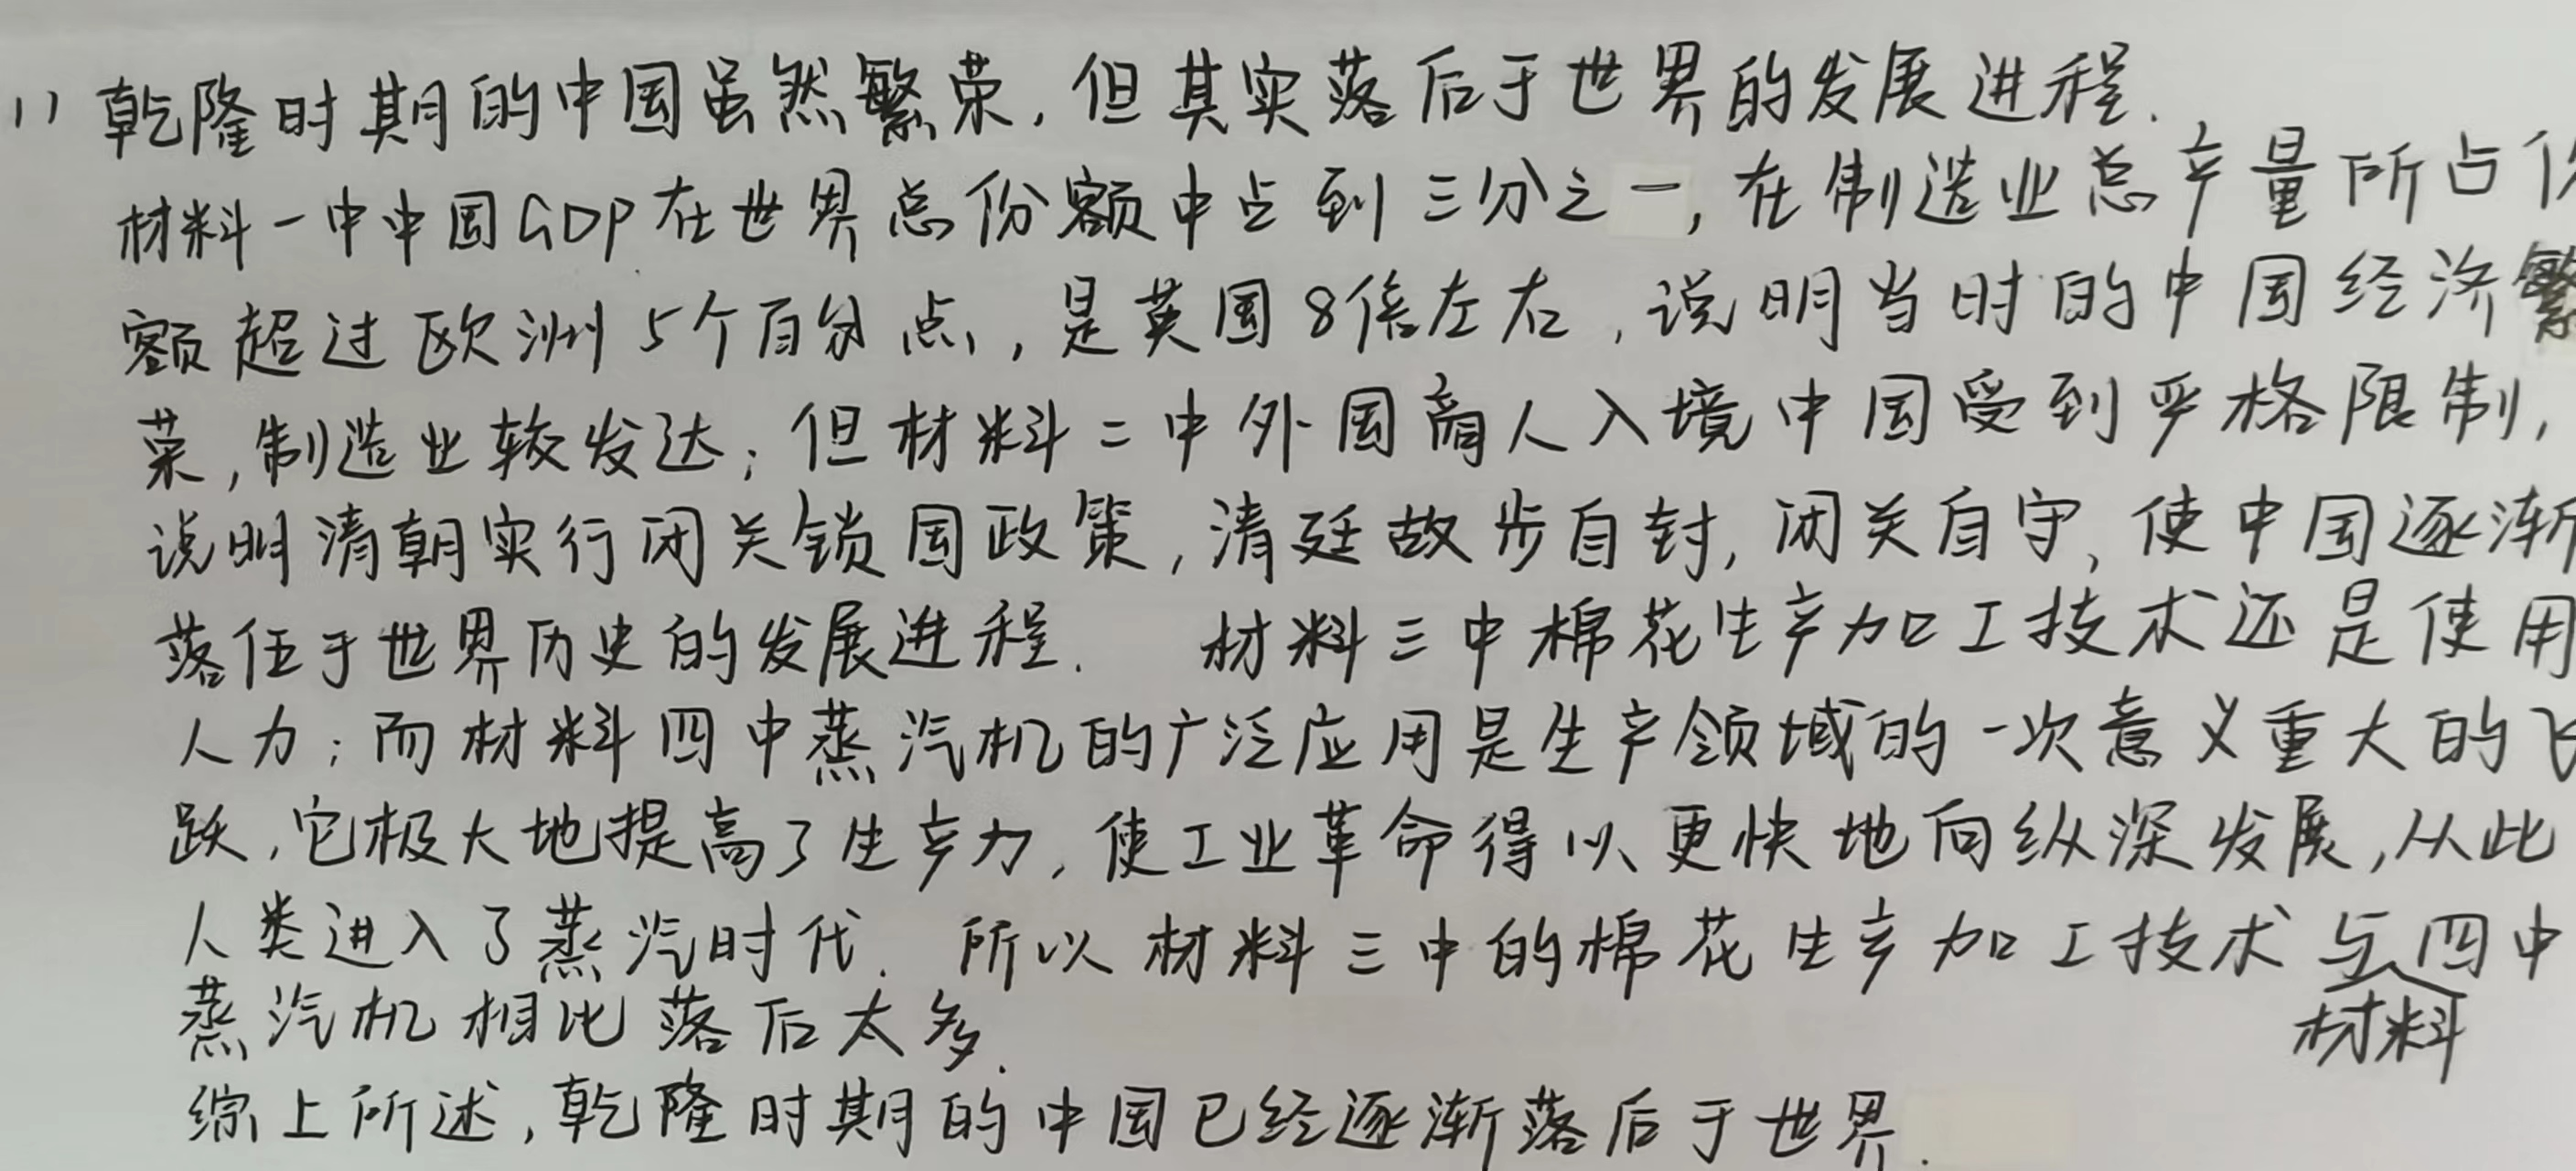 11 乾隆时期的中国虽然繁荣,但其实落后于世界的发展进程.
材料一中中国GDP在世界总份额中占到三分之一,在制造业总产量所占份
额超过欧洲5个百分点,是英国8倍左右,说明当时的中国经济繁
荣,制造业较发达;但材料二中外国商人入境中国受到严格限制,
说明清朝实行闭关锁国政策,清廷故步自封,闭关自守,使中国逐渐
落伍于世界历史的发展进程. 材料三中棉花生产加工技术还是使用
人力;而材料四中蒸汽机的广泛应用是生产领域的一次意义重大的飞
跃,它极大地提高了生产力,使工业革命得以更快地向纵深发展,从此
人类进入了蒸汽时代.所以材料三中的棉花生产加工技术与材料四中
蒸汽机相比落后太多.
综上所述,乾隆时期的中国已经逐渐落后于世界.